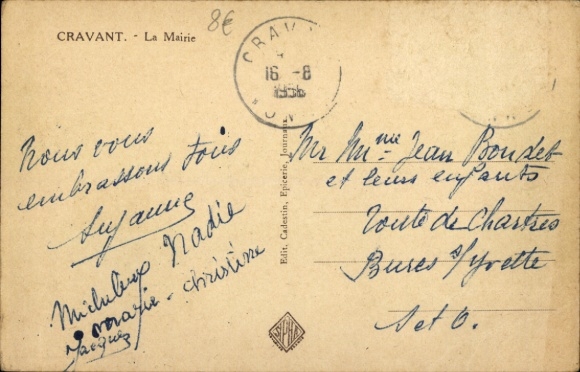 CRAVANT. - La Mairie
8€
CRAVAN
16 -8
1956
YONN
Nous vous
embrassons tous
Suzanne
Nadie
Micheline
Marie-Christine
Jacques
Edit. Cadestin, Epicerie, Journaux
Mr Mme Jean Boudet
et leurs enfants
Route de Chartres
Bures s/Yvette
S et O.